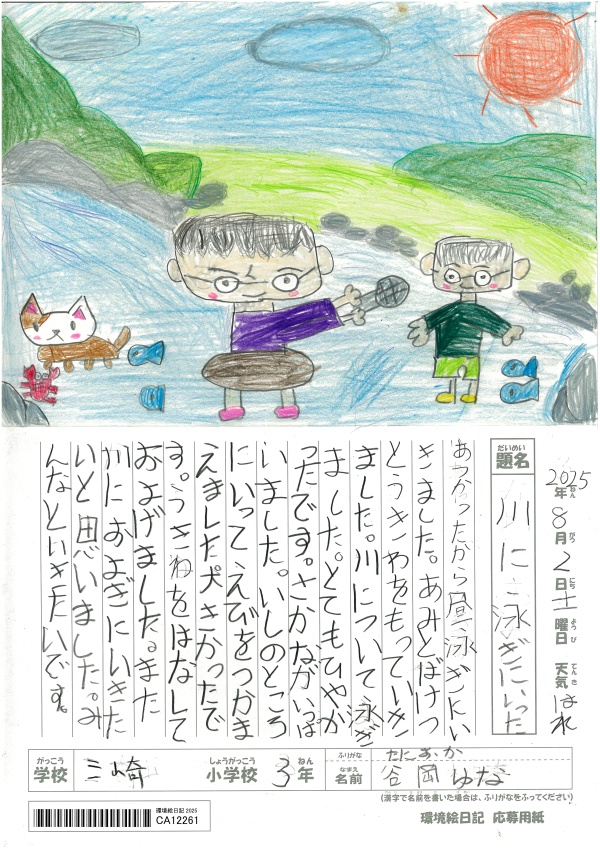 2025年ねん8月がつ2日にち土曜日ようび 天気てんき はれ
だいめい
題名 川に泳ぎにいった
あつかったから昼泳ぎにい
きました。あみとばけつ
とうきわをもっていき
ました。川について泳ぎ
ました。とてもひやか
ったです。さかながいっぱ
いました。いしのところ
にいってえびをつかま
えました大きかったで
す。うきわをはなして
およげました。また
川におよぎにいきた
いと思いました。み
んなといきたいです。
がっこう
学校 三崎
しょうがっこう
小学校 3年ねん
ふりがな たにおか
なまえ
名前 谷岡ゆな
(漢字で名前を書いた場合は、ふりがなをふってください)
環境絵日記 2025
CA12261
環境絵日記 応募用紙